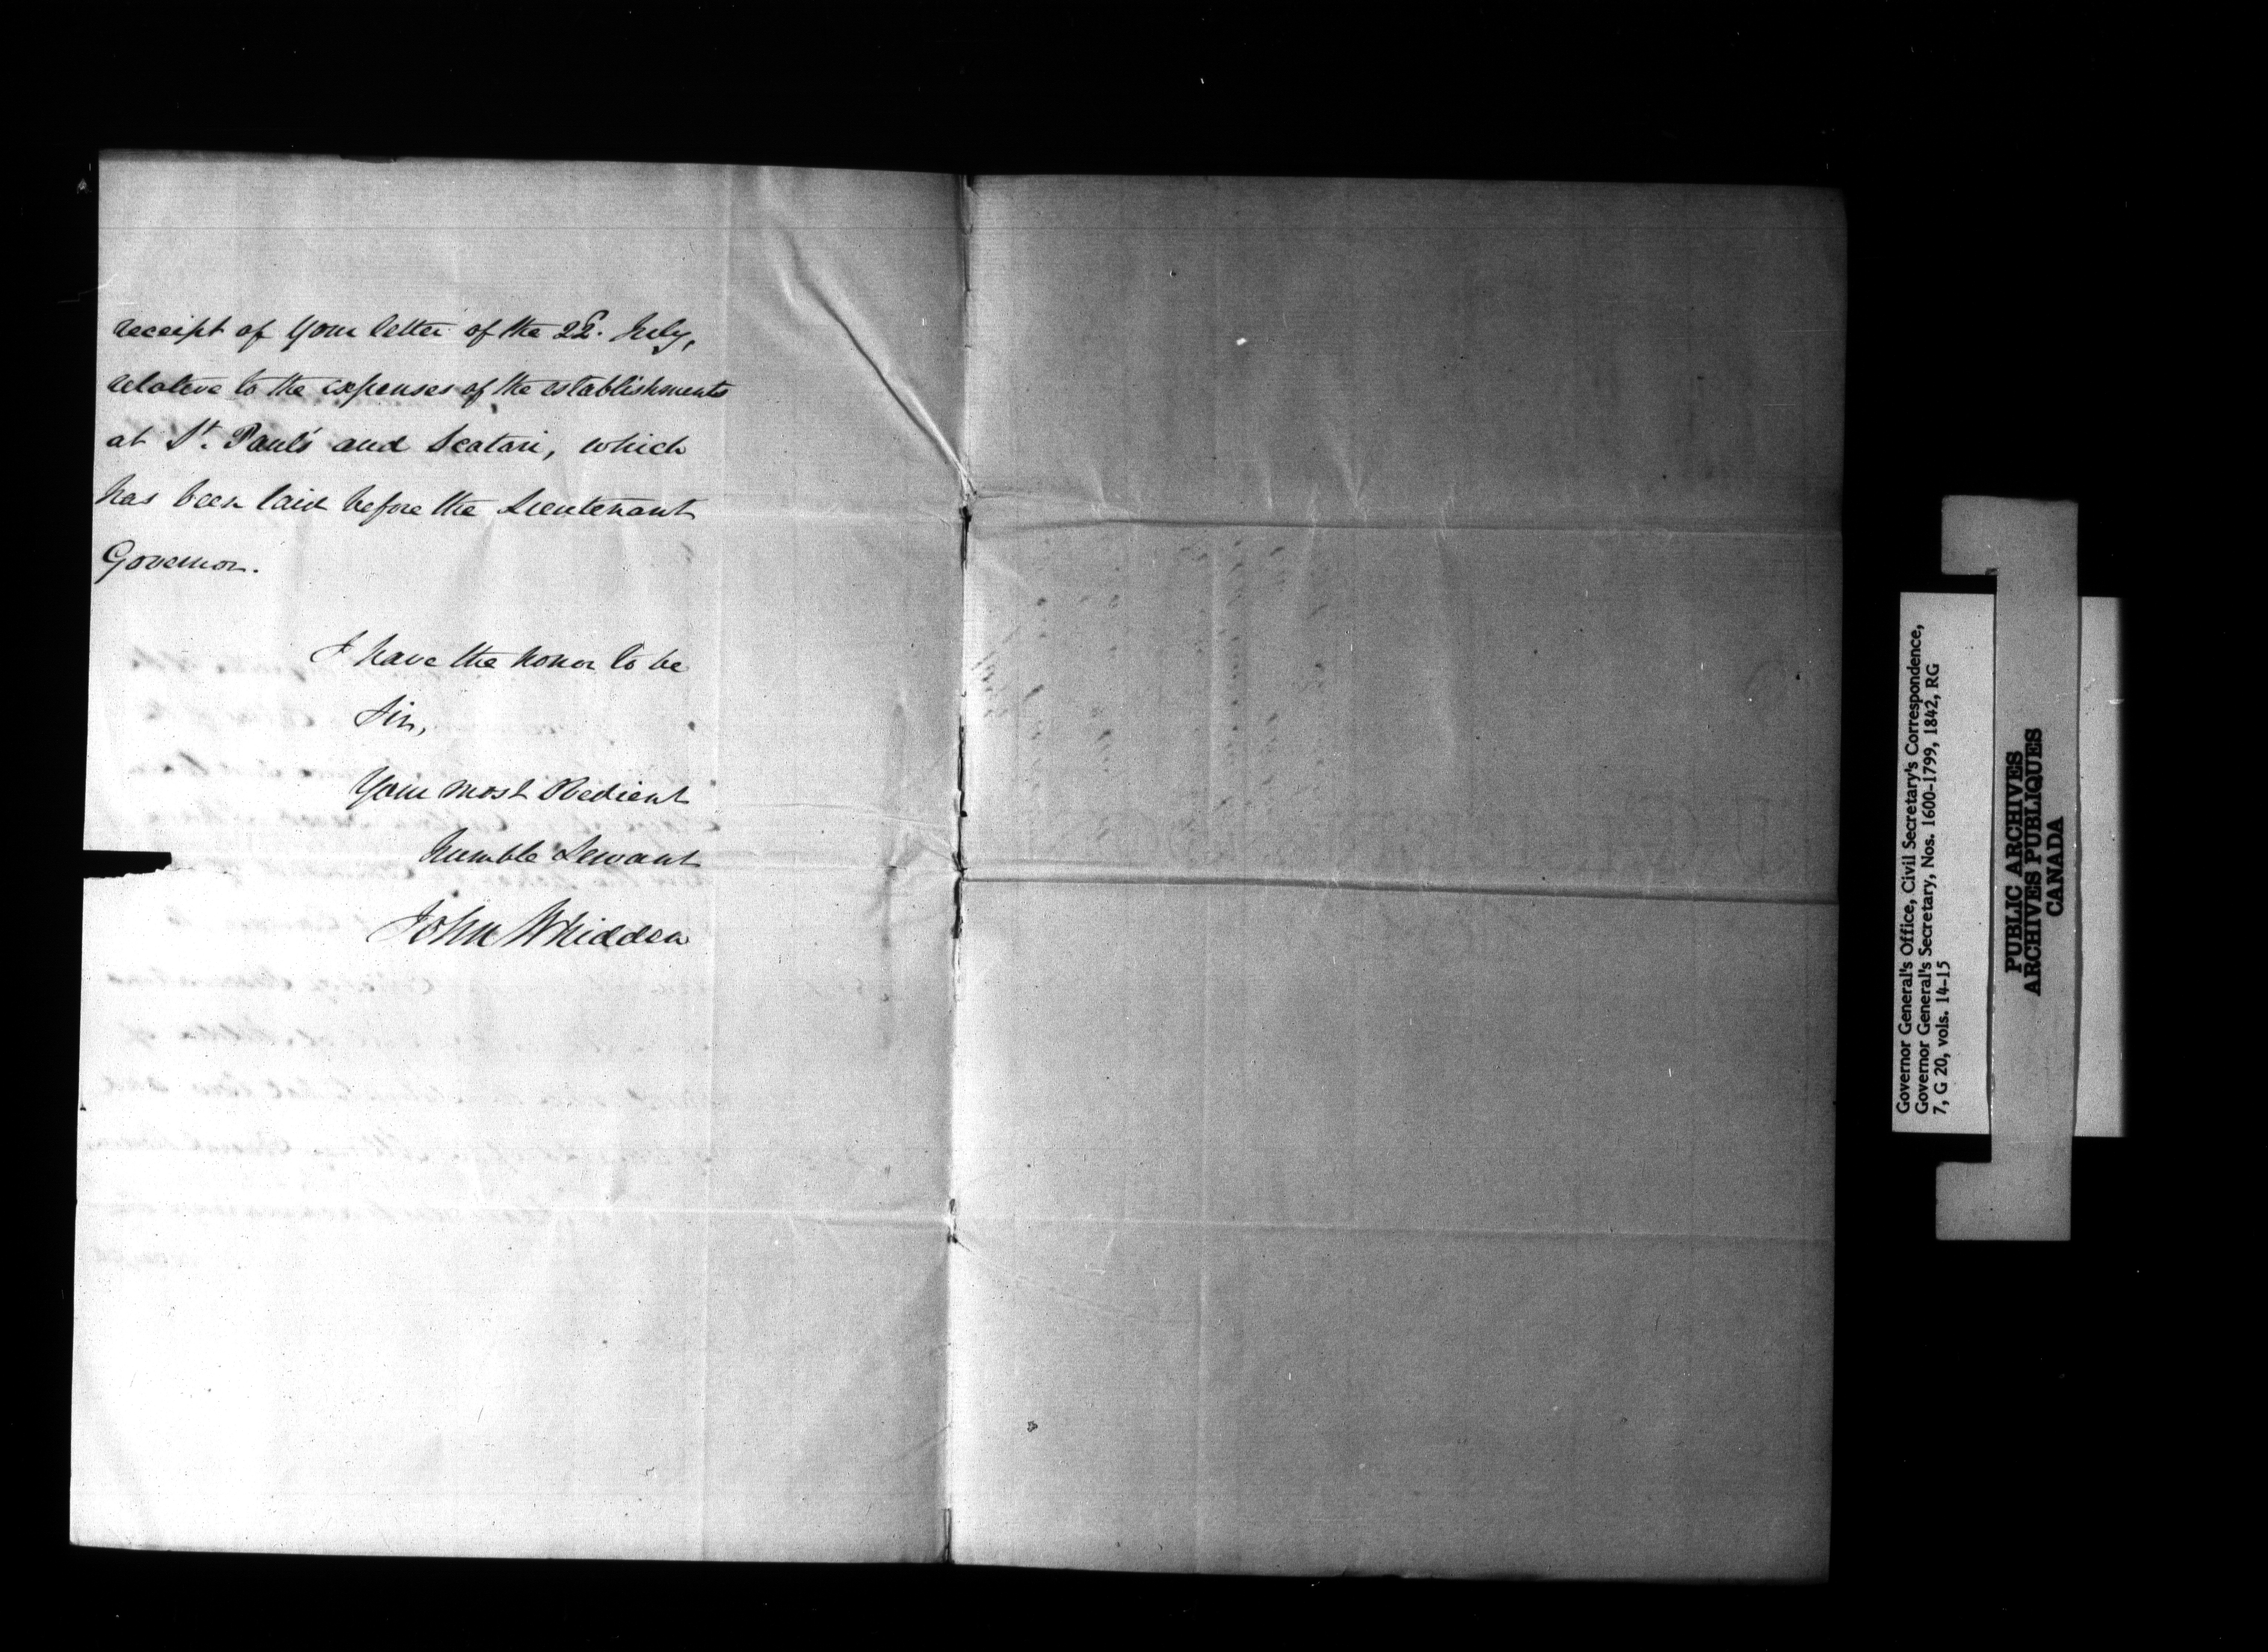 receipt of your letter of the 22d. July,
relative to the expenses of the establishments
at St. Paul's and Scatari, which
has been laid before the Lieutenant
Governor.
I have the honor to be
Sir,
Your most Obedient
humble Servant
John Whidden
Governor General's Office, Civil Secretary's Correspondence,
Governor General's Secretary, Nos. 1600-1799, 1842, RG
7, G 20, vols. 14-15
PUBLIC ARCHIVES
ARCHIVES PUBLIQUES
CANADA